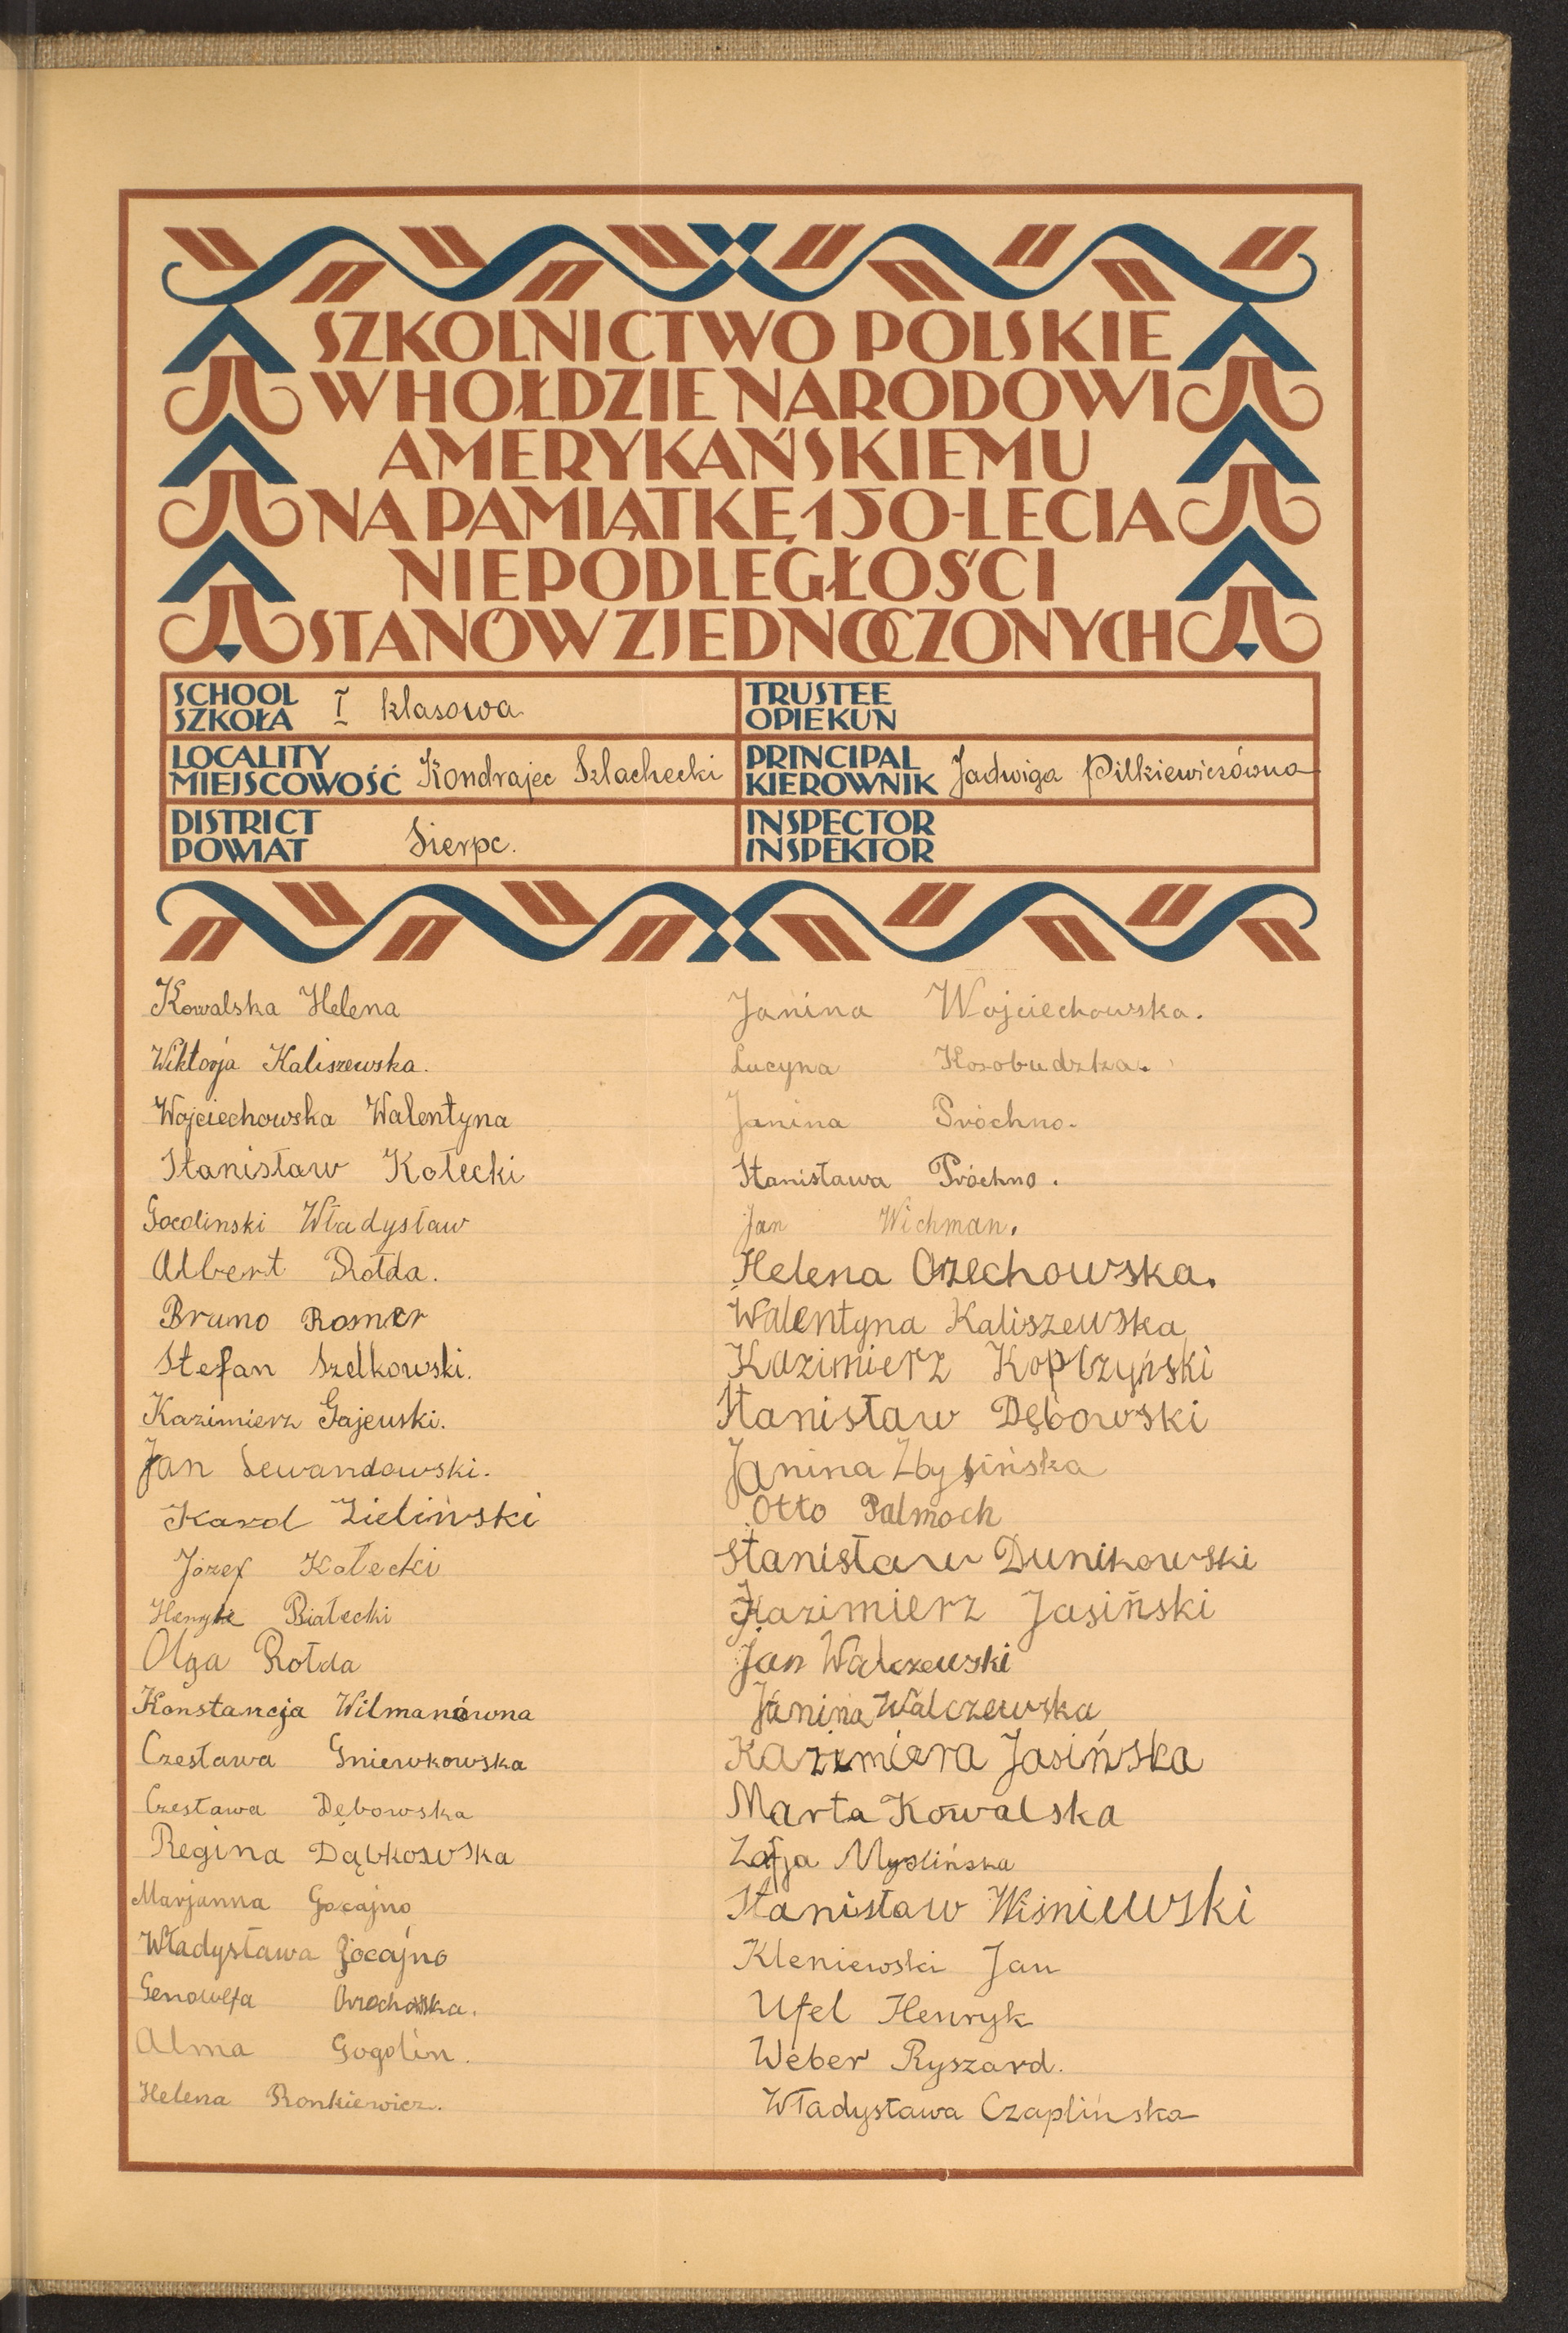 SZKOLNICTWO POLSKIE
W HOŁDZIE NARODOWI
AMERYKAŃSKIEMU
NA PAMIĄTKĘ 150-LECIA
NIEPODLEGŁOŚCI
STANÓW ZJEDNOCZONYCH
SCHOOL
SZKOŁA I klasowa
TRUSTEE
OPIEKUN
LOCALITY
MIEJSCOWOŚĆ Kondrajec Szlachecki
PRINCIPAL
KIEROWNIK Jadwiga Pilkiewiczówna
DISTRICT
POWIAT Sierpc.
INSPECTOR
INSPEKTOR
Kowalska Helena
Wiktorja Kaliszewska.
Wojciechowska Walentyna
Stanisław Kołecki
Władysław
Albert Rołda.
Bruno Rosner
Stefan Szelkowski.
Kazimierz Gajewski.
Jan Lewandowski.
Karol Zieliński
Józef Kołecki
Henryk Białecki
Olga Rołda
Konstancja Wilmanówna
Czesława Gniewkowska
Czesława Dębowska
Regina Dąbkowska
Marjanna Gocajno
Władysława Gocajno
Genowefa
Alma Gogolin.
Helena Ronkiewicz.
Janina Wojciechowska.
Lucyna Kosobudzka.
Janina Próchno.
Stanisława Próchno.
Jan Wichman.
Helena Orzechowska.
Walentyna Kaliszewska
Kazimierz Kopczyński
Stanisław Dębowski
Janina
Otto Palmoch
Stanisław Dunikowski
Kazimierz Jasiński
Jan Walczewski
Janina Walczewska
Kazimiera Jasińska
Marta Kowalska
Zofja Myslińska
Stanisław Wiśniewski
Kleniewski Jan
Ufel Henryk
Weber Ryszard.
Władysława Czaplińska